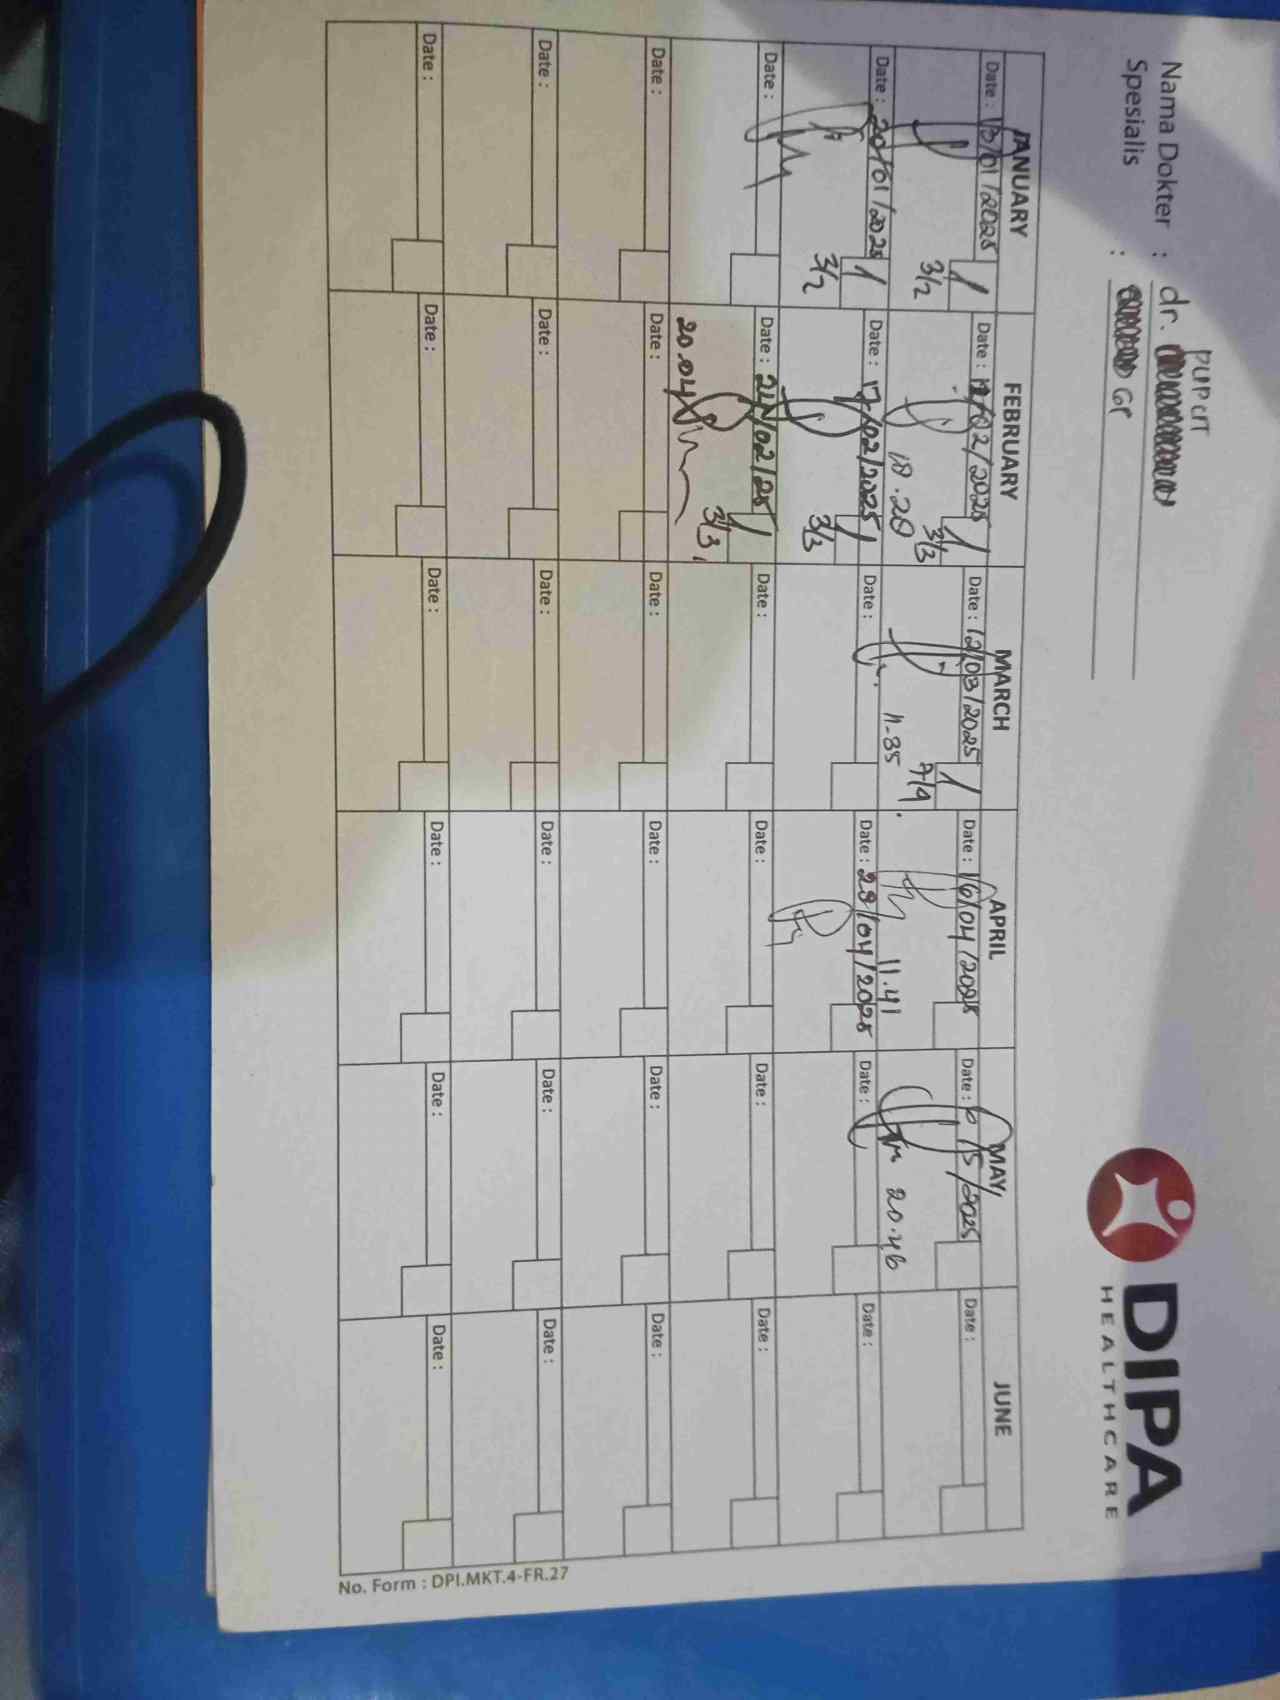 DIPA
HEALTHCARE
pupcit
Nama Dokter : dr.
Spesialis : GP
JANUARY FEBRUARY MARCH APRIL MAY JUNE
Date : 16/01/2025 1 Date : 12/02/2025 1 Date : 12/03/2025 1 Date : 16/04/2025 Date : 6/5/2025 Date :
3/2 18.20 3/3 11-35 7/4 11.41 20.46
Date : 20/01/2025 1 Date : 17/02/2025 1 Date : Date : 29/04/2025 Date : Date :
3/2 3/3
Date : Date : 24/02/25 1 Date : Date : Date : Date :
20.04 3/3
Date : Date : Date : Date : Date : Date :
Date : Date : Date : Date : Date : Date :
Date : Date : Date : Date : Date : Date :
No. Form : DPI.MKT.4-FR.27